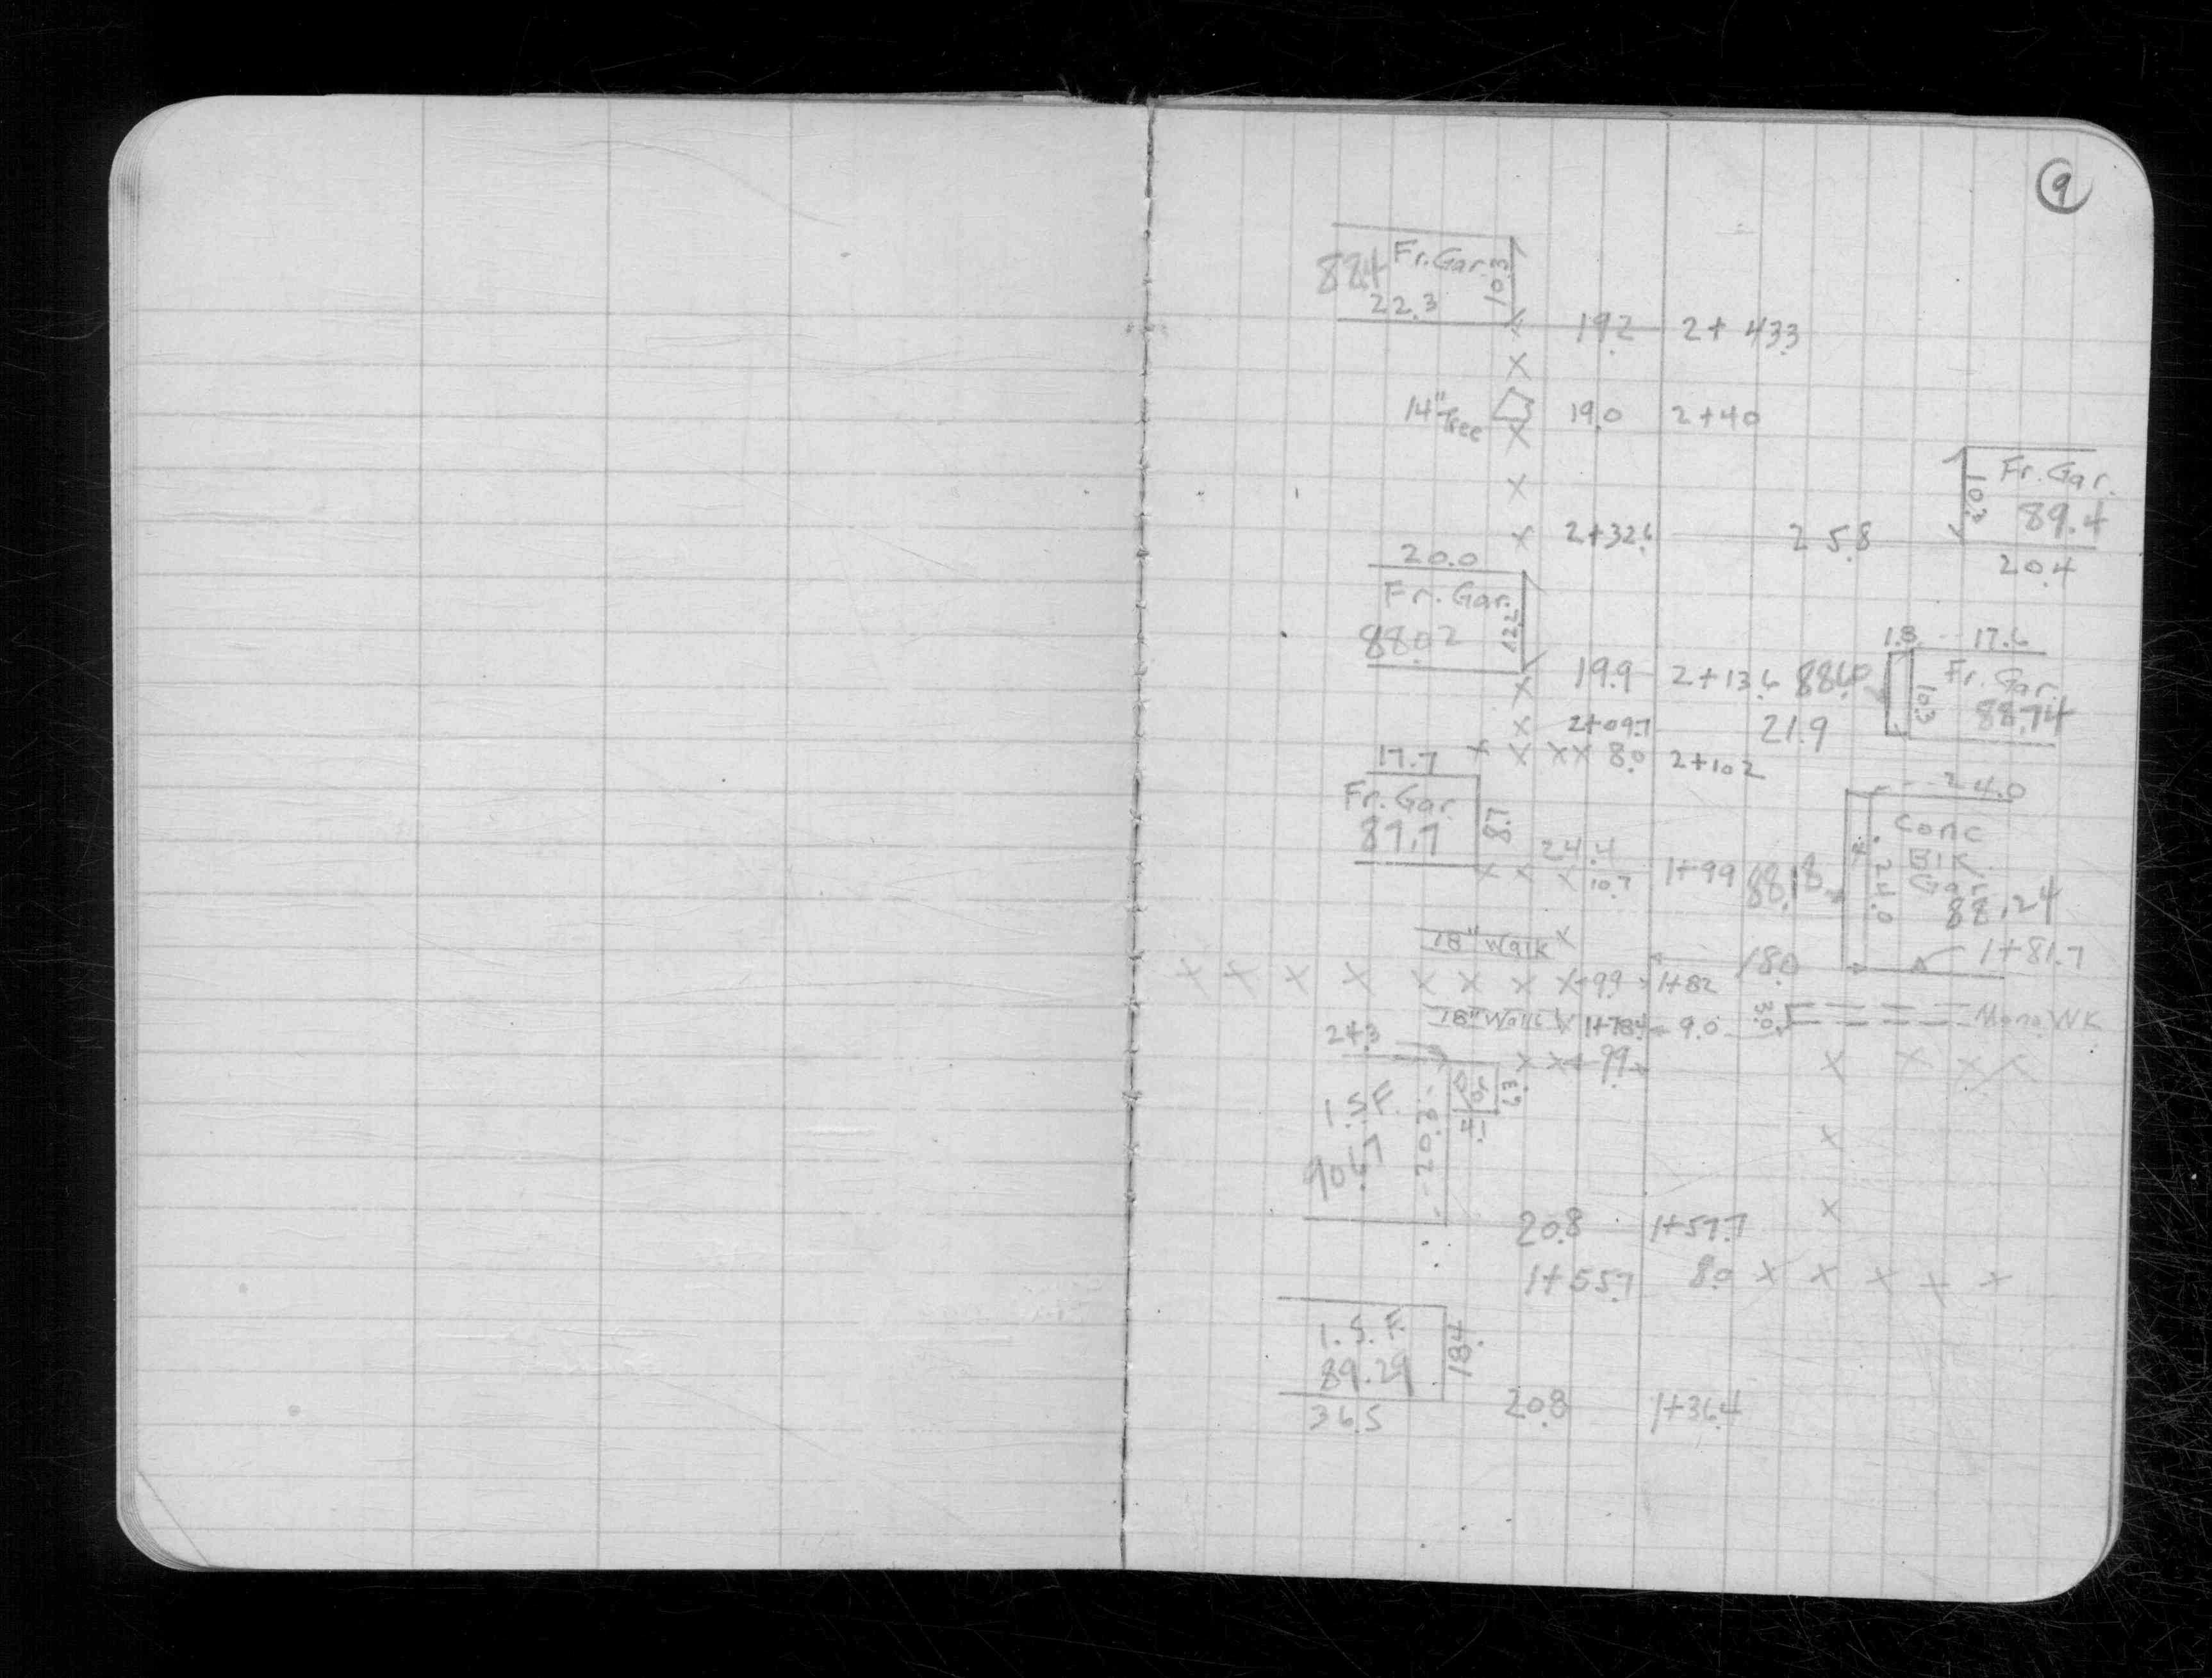 9
Fr. Gar.
88.4
10.3
22.3
19.2 2+43.3
X
14" Tree 19.0 2+40
X
X
Fr. Gar.
10.3
89.4
X 2+32.6 25.8
20.4
20.0
Fr. Gar.
88.02
12.2
1.8 17.6
X 19.9 2+13.6 88.60
Fr. Gar.
10.3
88.74
X 2+09.7 21.9
17.7 X X X X 8.0 2+10.2
Fr. Gar.
87.7
8.7
24.0
Conc
Blk.
Gar
24.0
88.24
24.4
X X X 10.7 1+99 88.18
18" Walk X
18.0 1+81.7
X X X X X X X X 9.9 1+82
18" Walk X 1+78.4 9.0 3.0 Mono WK
24.3
X X 9.9 X X X X
1.S.F.
20.3
6.3
4.1
90.67
X
X
20.8 1+57.7
1+55.7 8.0 X X X X X
1.S.F.
89.29
18.4
36.5 20.8 1+36.4